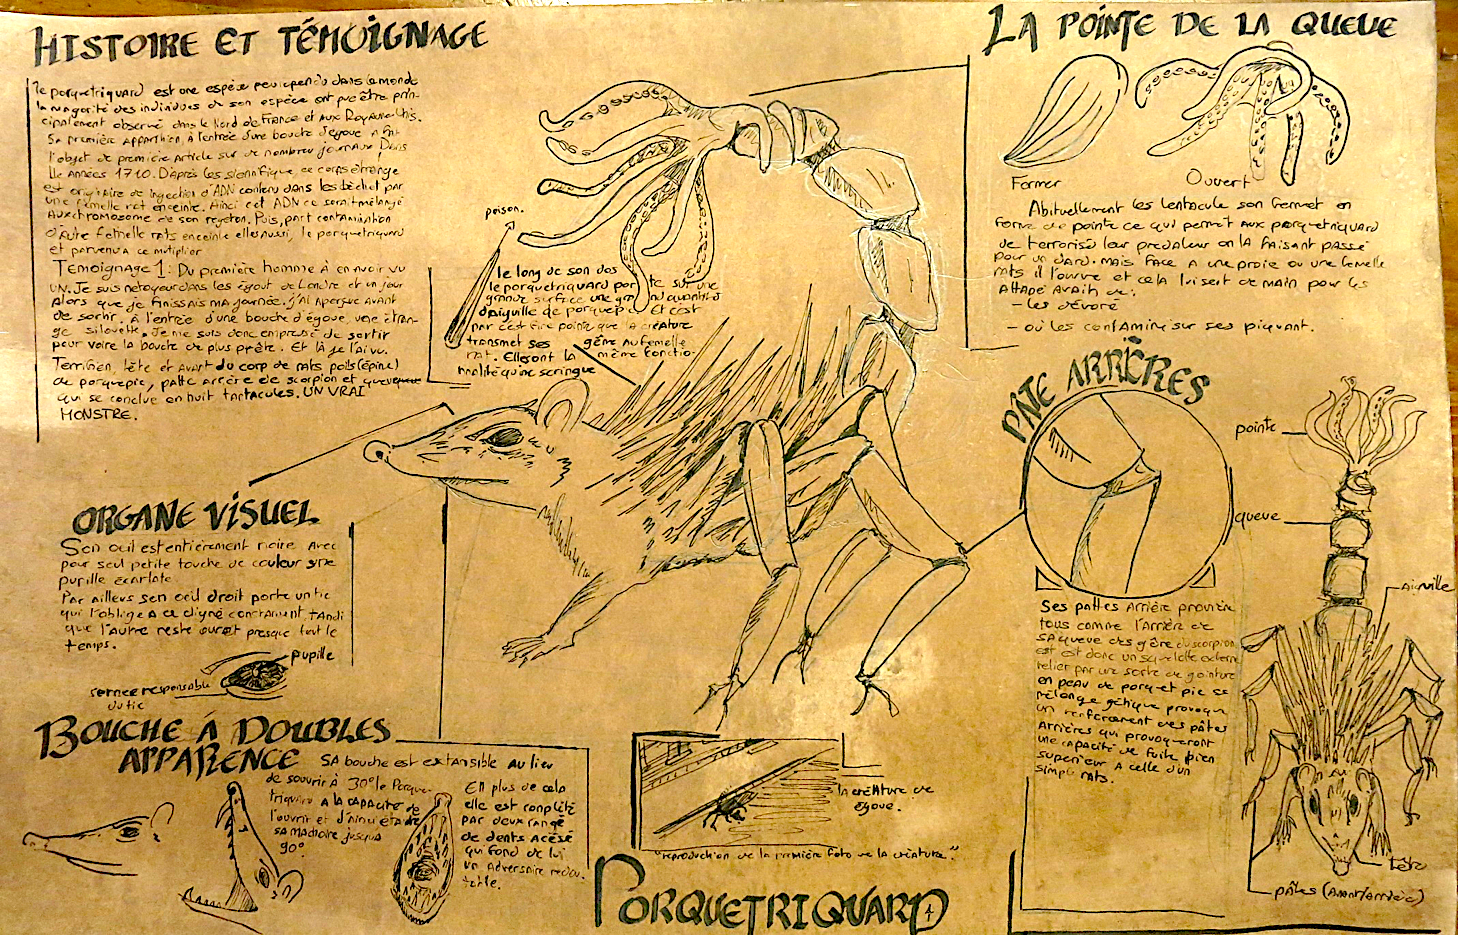 HISTOIRE ET TÉMOIGNAGE
le porquetriquard est une espèce peu rependu dans le monde
la magorité des individues de son espèce ont pue être prin-
cipalement observé dans le Nord de France et aux Royaume Unis.
Sa première apparition, à l'entrée d'une bouche d'égoue a fait
l'objet de première article sur de nombreu journaux Dans
lle Années 1710. D'après les sientifique, ce corps étrange
est originaire de ingection d'ADN contenu dans les déchet par
une femelle rat enceinte. Ainci cet ADN ce serait mélangé
Aux chromosome de son regeton. Puis, part contamination
d'autre femelle rats enceinte elles aussi, le porquetriquard
et parvenu a ce multiplier
Temoignage 1: Du première homme à en avoir vu
UN. Je suis nétoyeur dans les égout de Londre et un jour
Alors que je finissais ma journée, j'ai aperçue avant
de sortir, à l'entrée d'une bouche d'égoue, une étran-
ge silouette. Je me suis donc empressé de sortir
pour voire la bouche de plus prête. Et là je l'ai vu.
Terrifien, tête et avant du corp de rats poils (épine)
de porquepie, patte arrière de scorpion et queue
qui se conclue en huit tantacules. UN VRAI
MONSTRE.
poison.
le long de son dos
le porquetriquard porte sur une
grande surface une grand quantité
d'aiguille de porquepie. Et c'est
par cest fine pointe que la créature
transmet ses gêne au femelle
rat. Elles ont la même fonctio-
nalité qu'une seringue
LA POINTE DE LA QUEUE
Former
Ouvert
Abituellement les tentacule son fermet en
forme de pointe ce qui permet aux porquetriquard
de terrorisé leur predateur en la faisant passé
pour un dard. Mais face a une proie ou une femelle
rats il l'ouvre et cela lui sert de main pour les
Attapé avait de:
- les dévoré
- où les contaminé sur ses piquant.
PÂTE ARRIÈRES
Ses pattes arrière provière
tous comme l'arrièr de
sa queue des gêre du scorpion
est est donc un squelette externe
relier par une sorte de jointure
en peau de porq et pic se
mélange gétique provoque
un renforcement des pâtes
Arrières qui provoqueront
une capacité de fuite bien
superieur a celle d'un
simple rats.
pointe
queue
Aiguille
tête
pâtes (Avant/arrière)
ORGANE VISUEL
Son oeil est entièrement noire avec
pour seul petite touche de couleur une
pupille écarlate
Par ailleus son oeil droit porte un tic
qui l'oblige a ce cligné constanment tandi
que l'autre reste ouvret presque tout le
temps.
pupille
responsable
du tic
BOUCHE À DOUBLES
APPARENCE
SA bouche est extansible au lieu
de souvrir à 30° le Porque-
triquard a la capacité de
l'ouvrir et d'ainsi étandre
sa machoire jusqua
90°
En plus de cela
elle est conplété
par deux rangé
de dents acésé
qui fond de lui
un adversaire redou-
table.
la créature de
égoue.
"reproduction de la première foto de la créature."
PORQUETRIQUARD